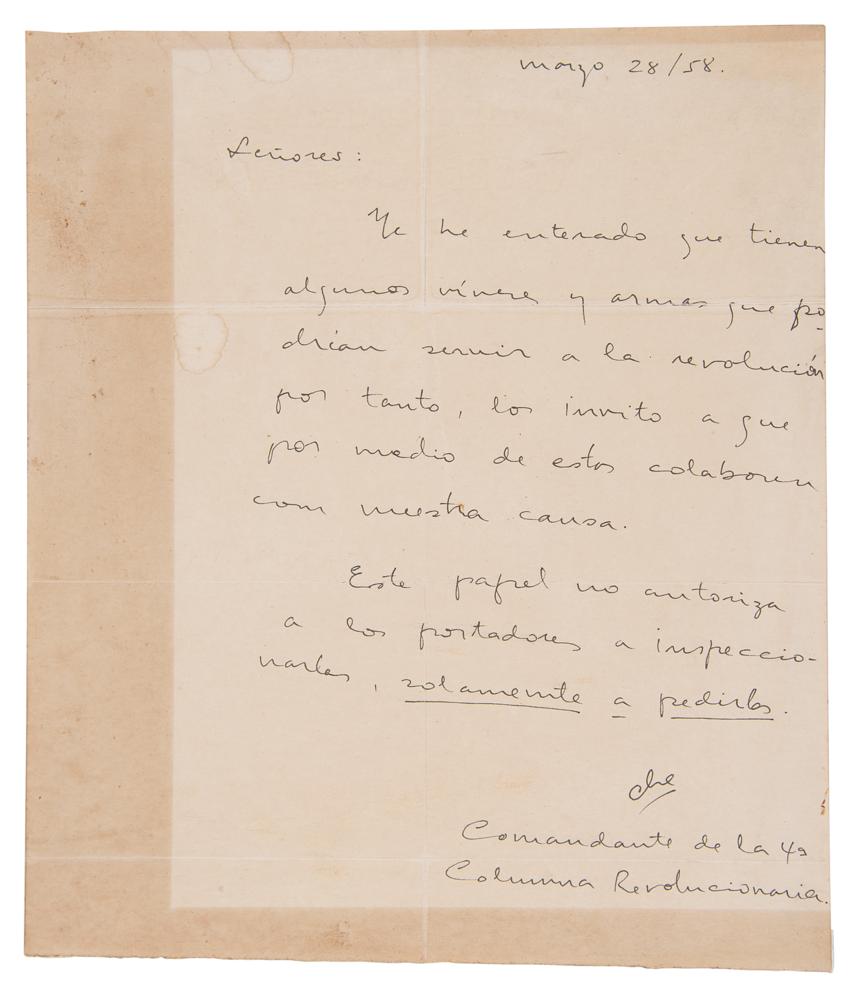 marzo 28/58.
Señores:
Me he enterado que tienen
algunos víveres y armas que po-
drían servir a la revolución
por tanto, los invito a que
por medio de estos colaboren
con nuestra causa.
Este papel no autoriza
a los portadores a inspeccio-
narlos, solamente a pedirlos.
Che
Comandante de la 4a
Columna Revolucionaria.